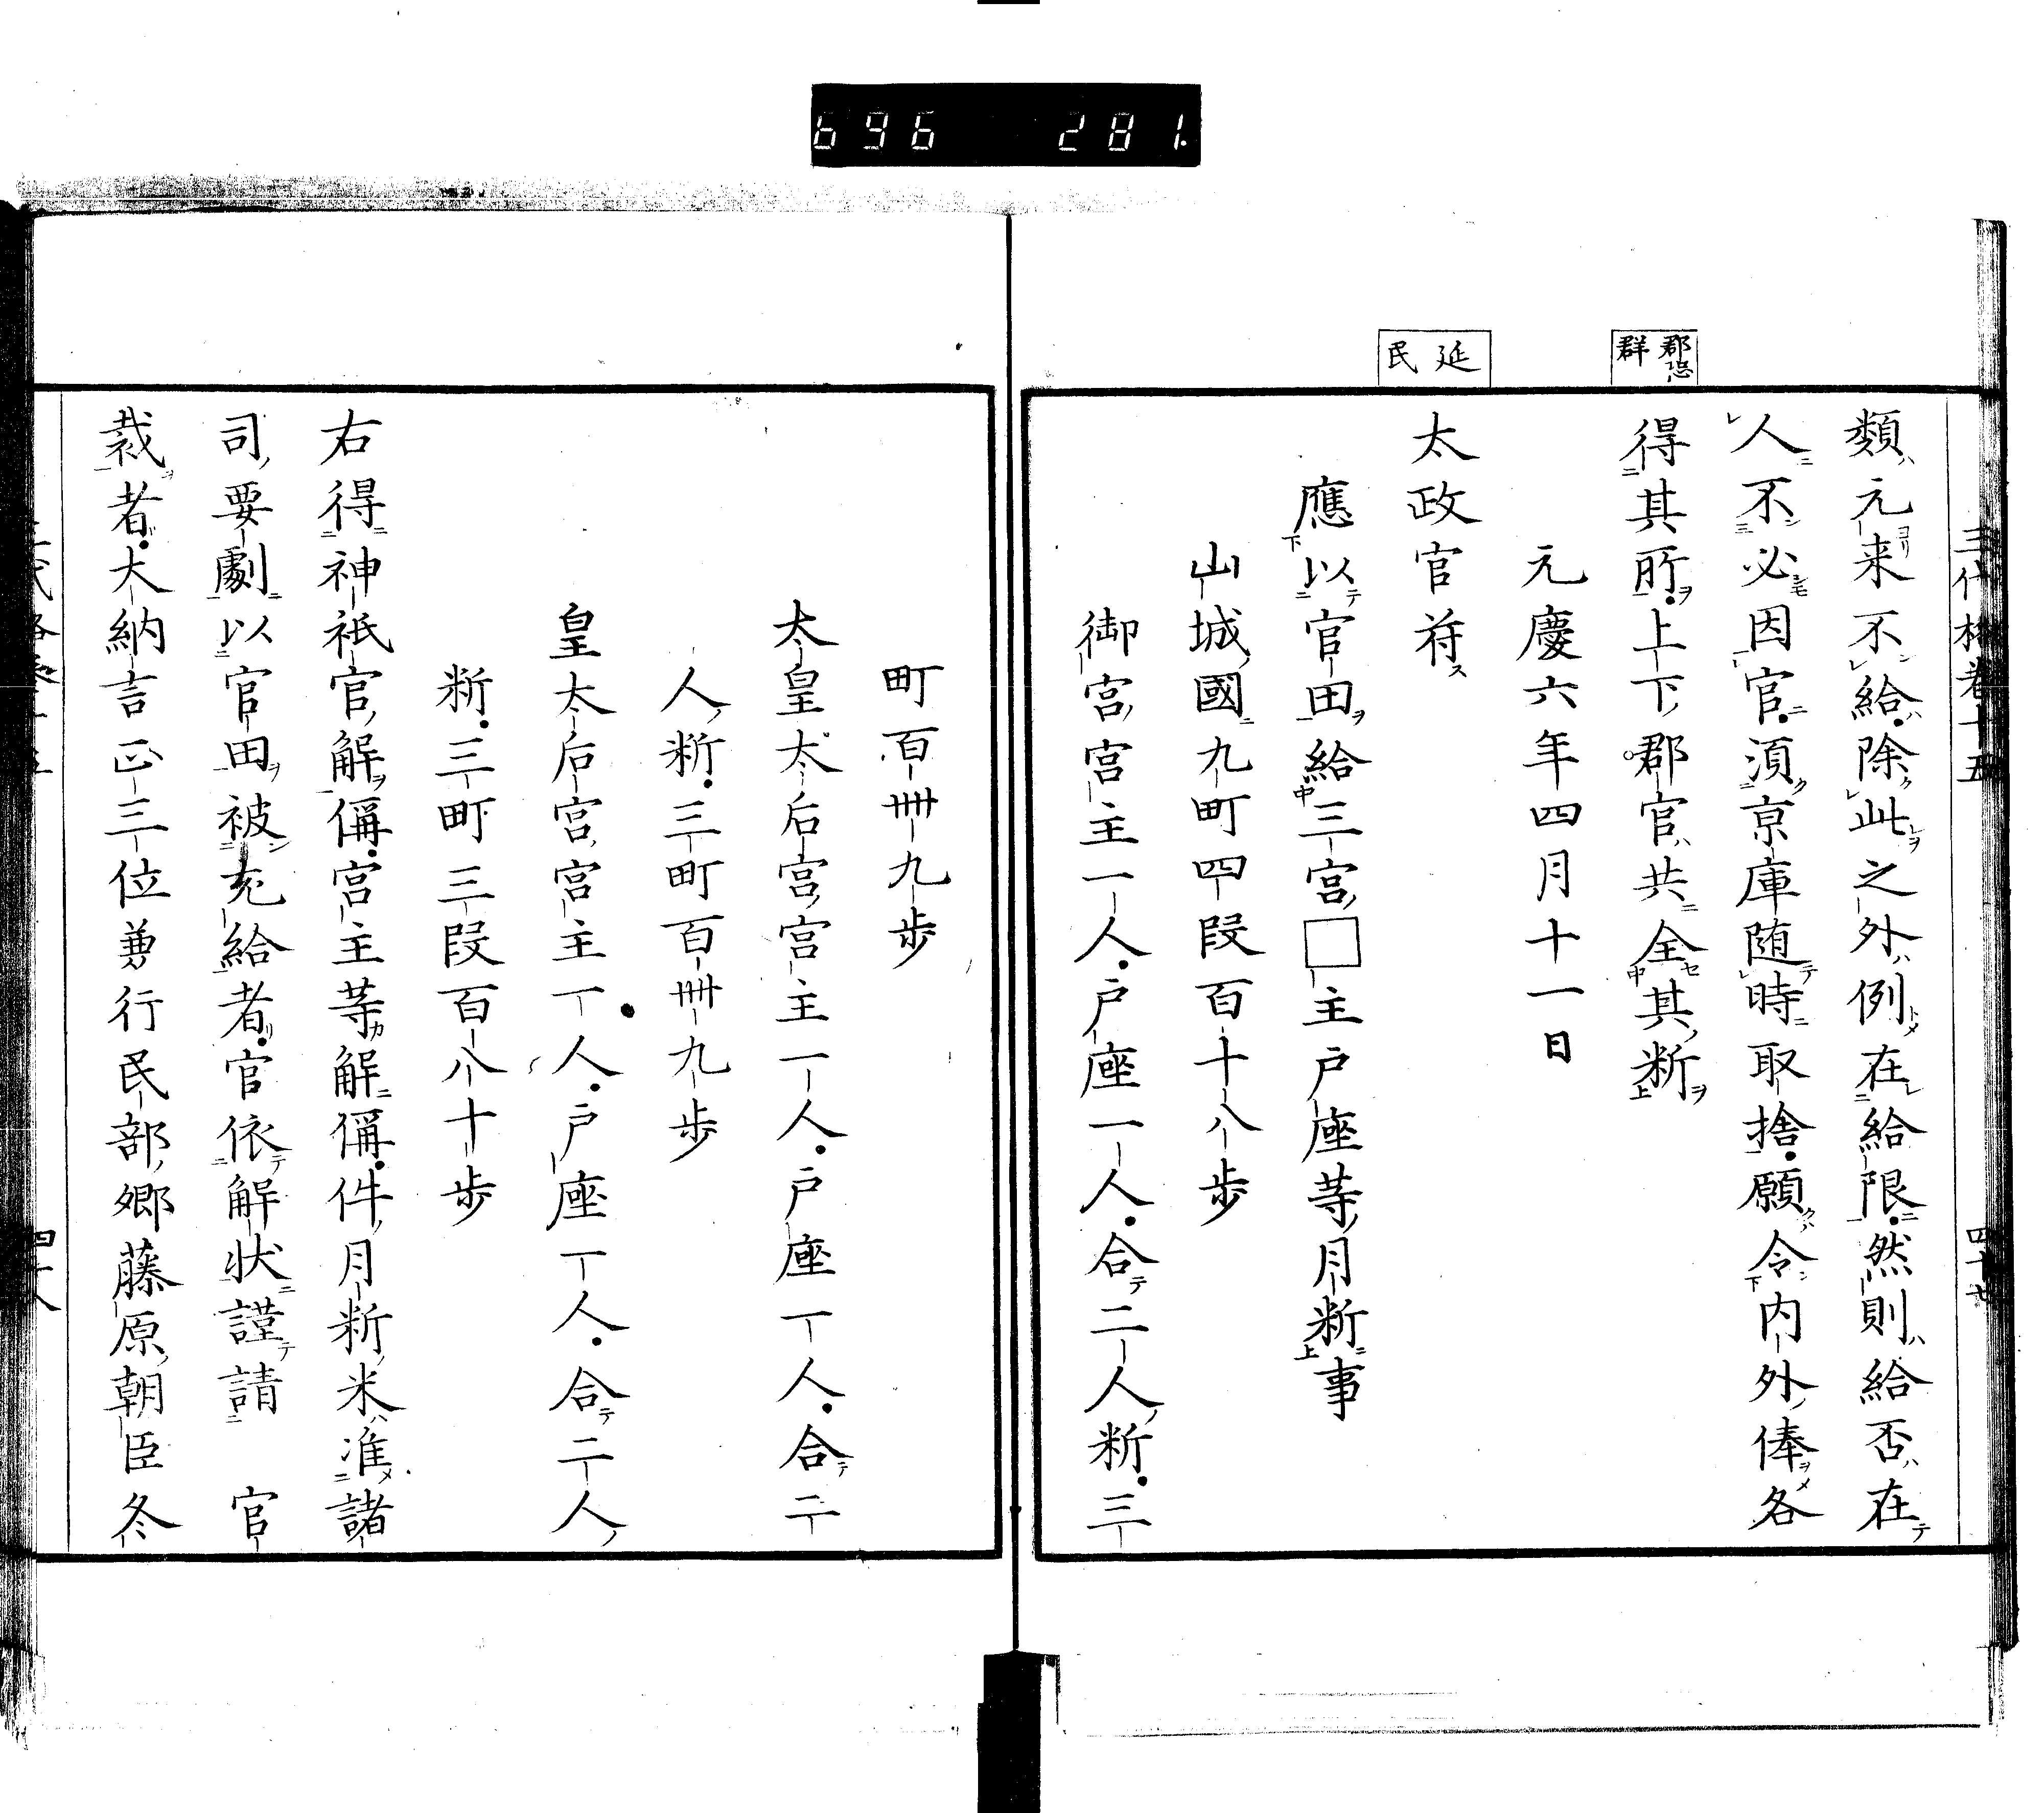 696 281
三代格卷十五
四十七
郡恐群
延民
類元来不給除此之外例在給限然則給否在
人不必因官須京庫随時取捨願令内外俸各
得其所上下郡官共全其断
元慶六年四月十一日
太政官符
應以官田給三宮□主戸座等月断事
山城國九町四段百十八歩
御宮宮主一人戸座一人合二人断三
町百卌九歩
太皇太后宮宮主一人戸座一人合二
人断三町百卌九歩
皇太后宮宮主一人戸座一人合二人
断三町三段百八十歩
右得神祇官解偁宮主等解偁件月断米准諸
司要劇以官田被充給者官依解状謹請 官
裁者大納言正三位兼行民部郷藤原朝臣冬